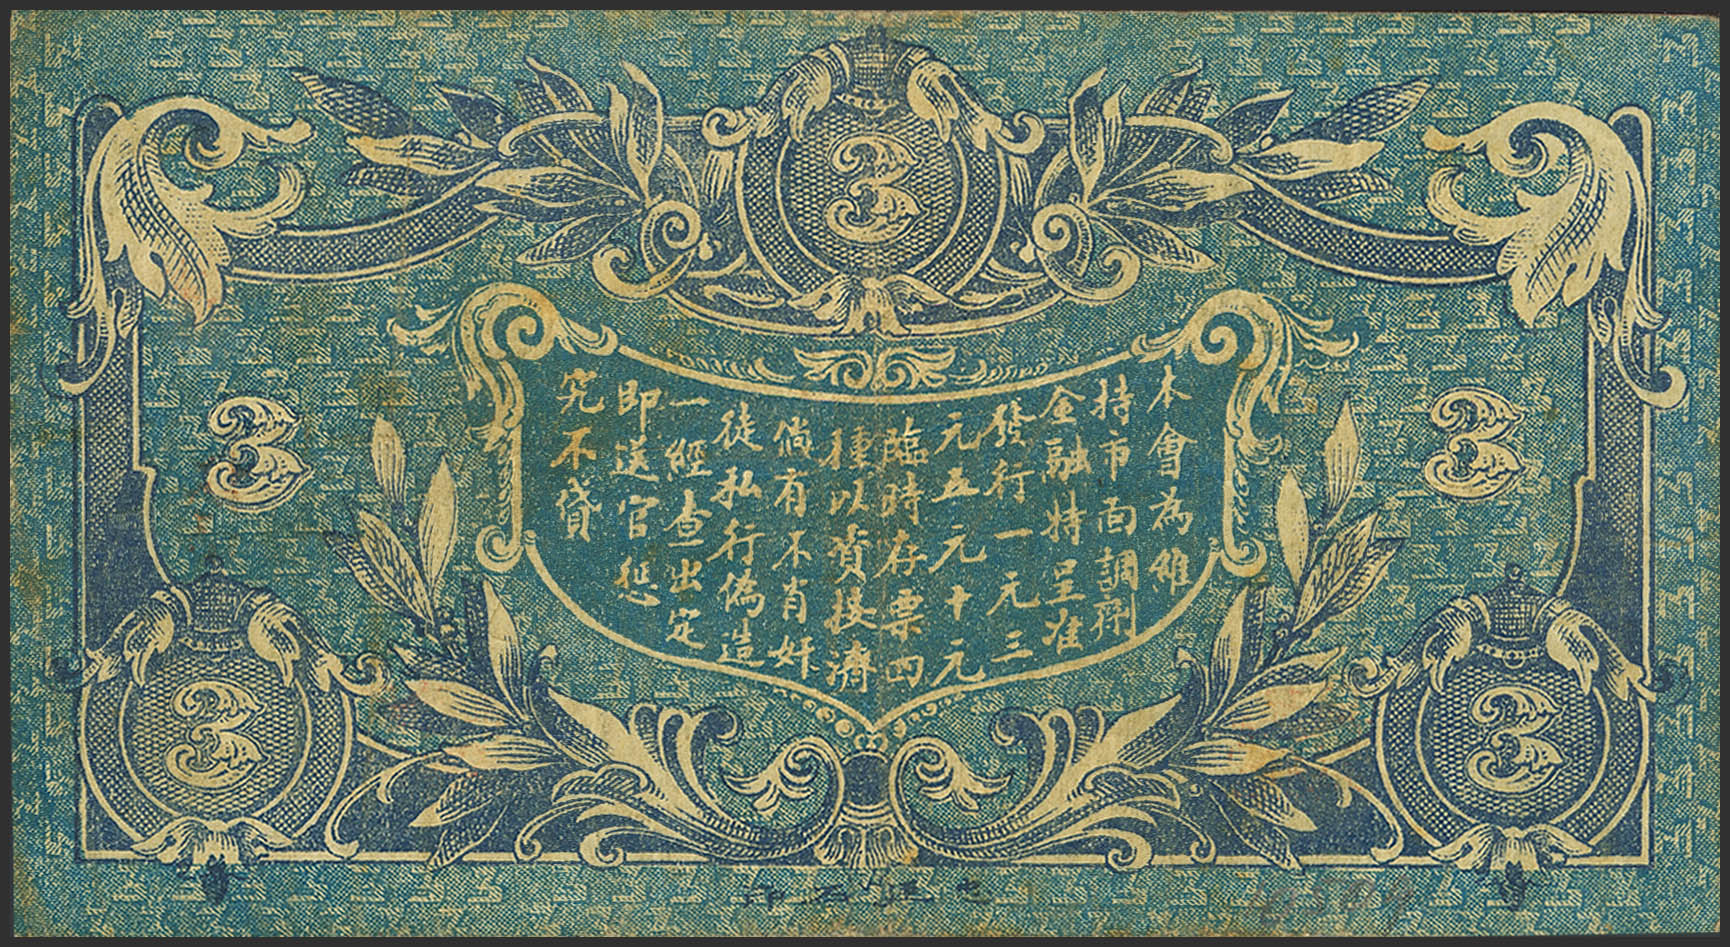 3
本會為維
持市面調劑
金融特呈准
發行一元三
元五元十元
臨時存票四
種以資接濟
倘有不肖奸
徒私行偽造
一經查出定
即送官惩
究不貸
3
3
3
3